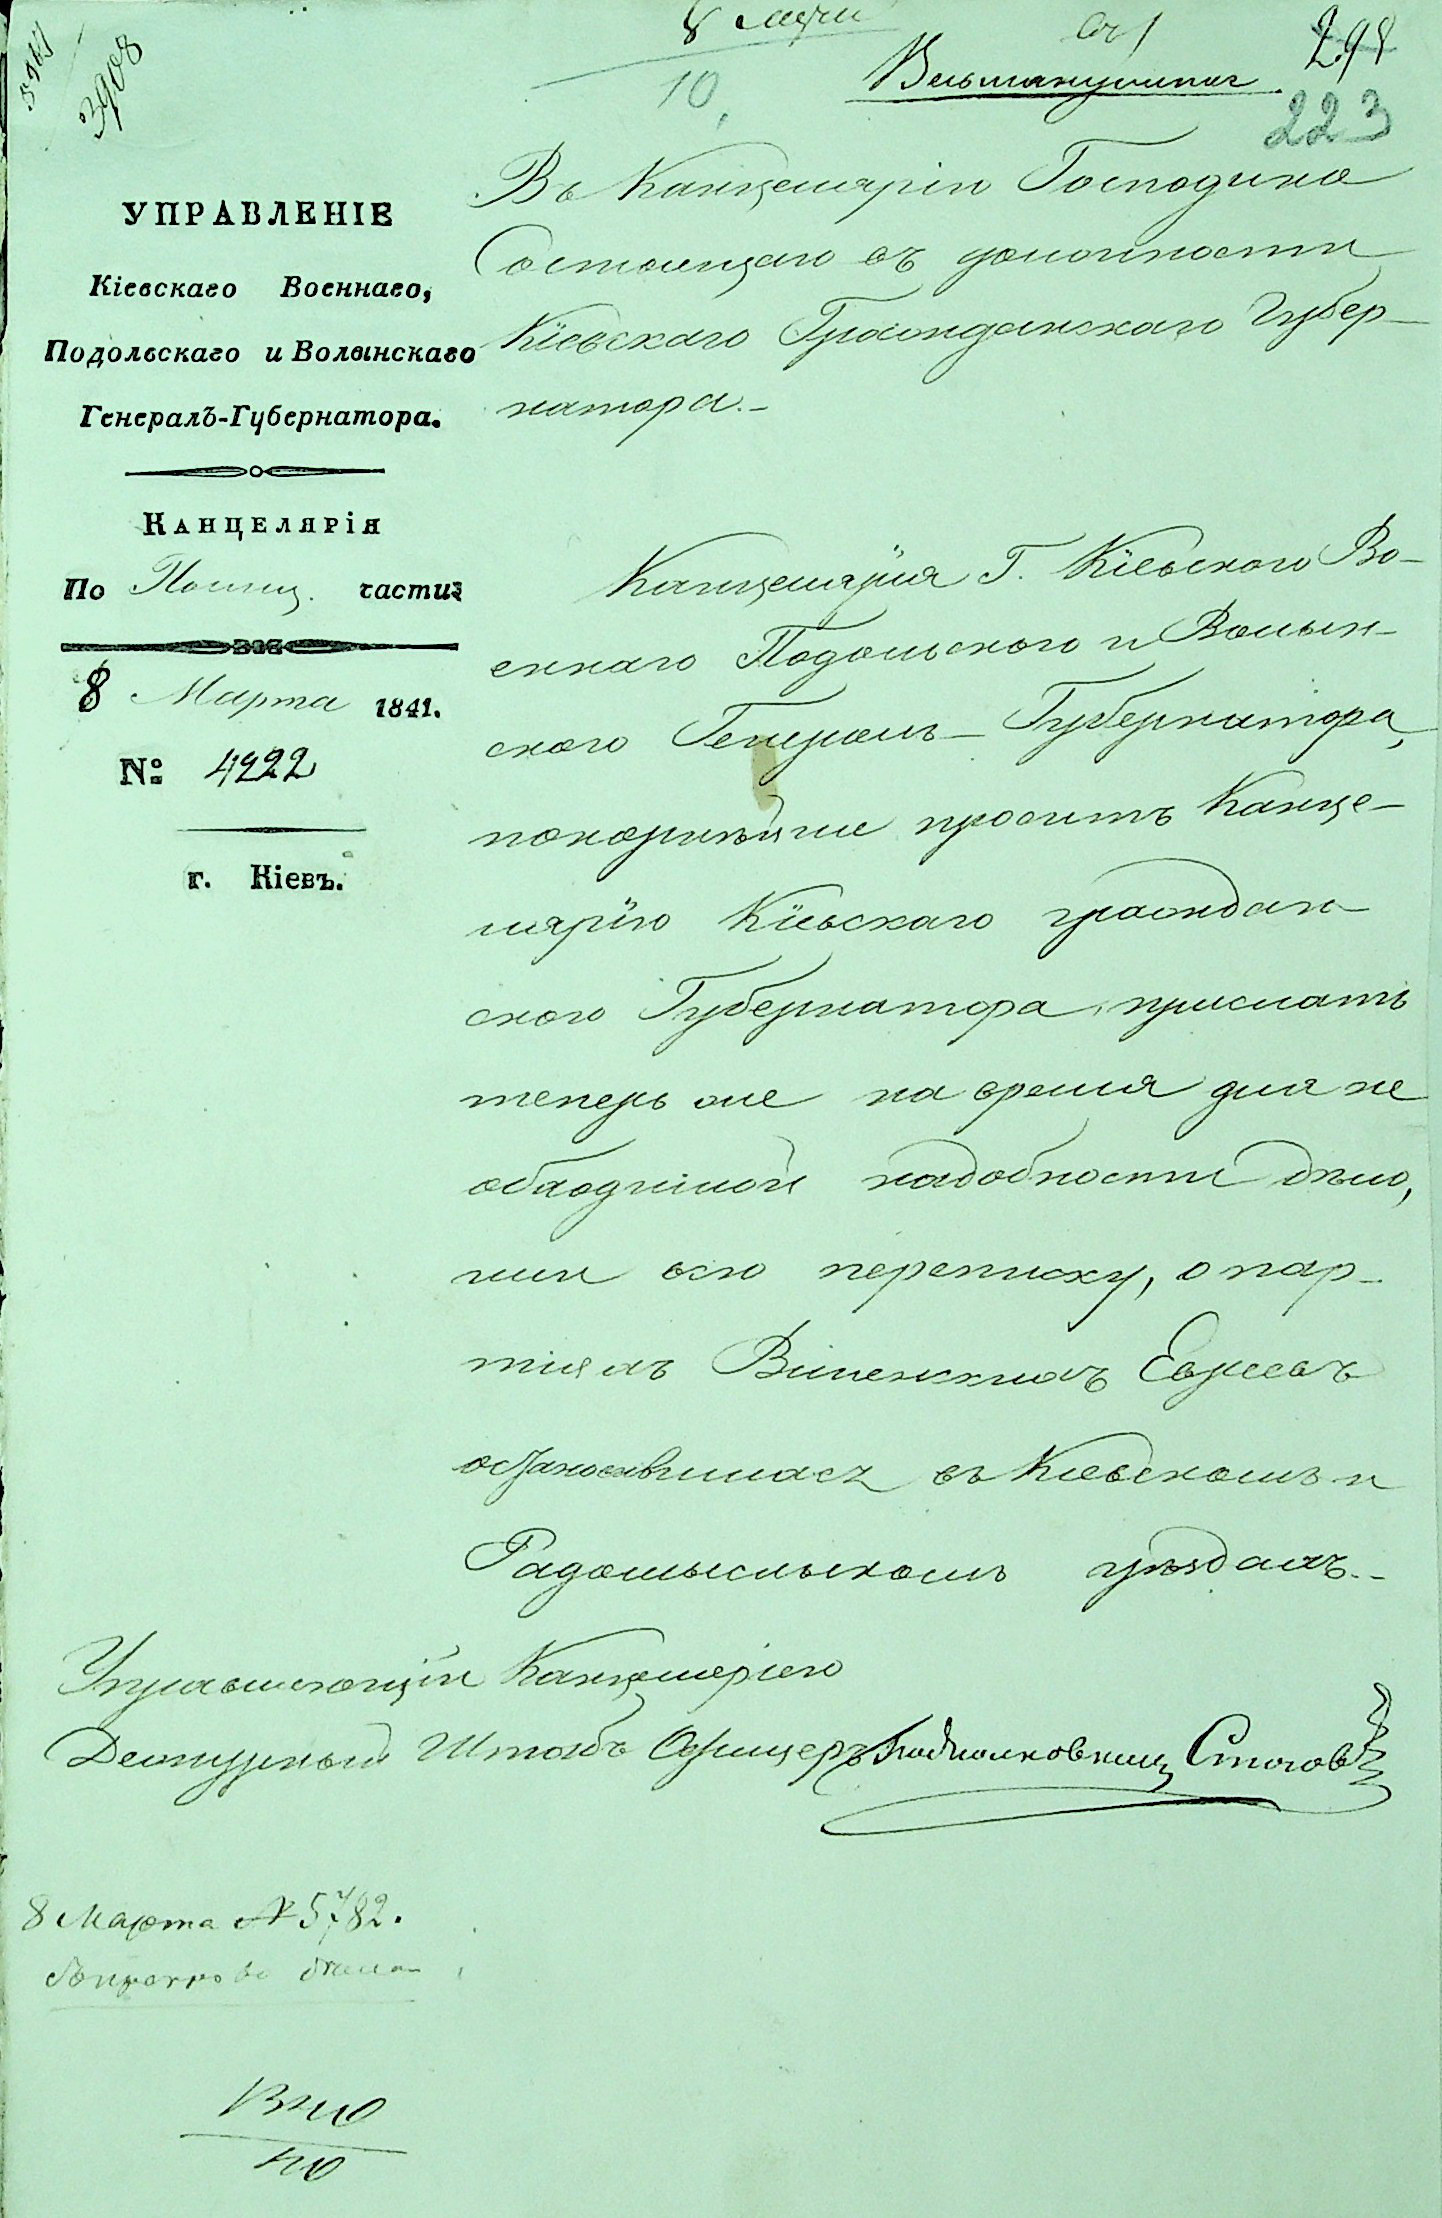 8 Марта
10
298
Весьманужное.
223
3908
УПРАВЛЕНІЕ
Кіевскаго Военнаго,
Подольскаго и Волынскаго
Генералъ-Губернатора.
КАНЦЕЛЯРІЯ
По Полиц. части
8 Марта 1841.
№: 4222
г. Кіевъ.
Въ Канцелярію Господина
Состоящаго въ должности
Кіевскаго Гражданскаго Губер-
натора.-
Канцелярія Г. Кіевского Во-
еннаго Подольского и Волын-
ского Генералъ-Губернатора,
покорнѣйше проситъ Канце-
лярію Кіевскаго граждан-
ского Губернатора, прислать
теперь же на время для не
обходимой надобности дѣло,
или всю переписку, о пар-
тіяхъ Виленскихъ Евреевъ
остановившихся въ Кіевскомъ и
Радомысльскомъ уѣздахъ.-
Управляющій Канцеляріею
Дежурный Штабъ Офицеръ Подполковникъ Стоговъ
8 Марта № 5782.